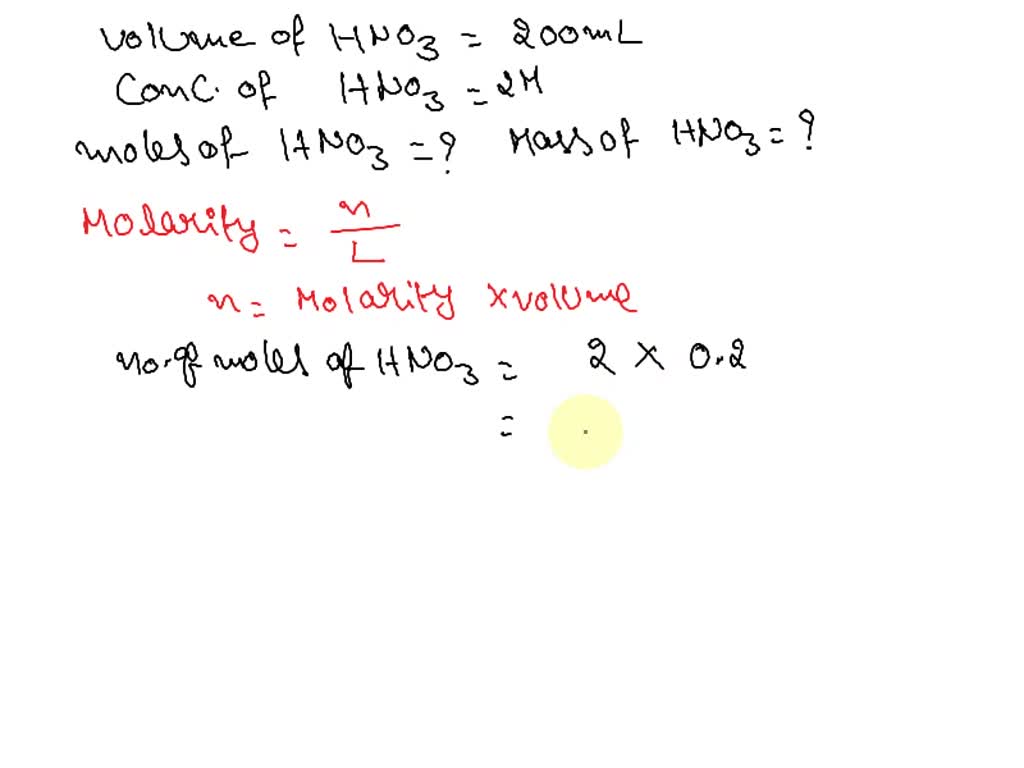 volume of HNO3 = 200mL
Conc. of HNO3 = 2M
moles of HNO3 = ? Mass of HNO3 = ?
Molarity = n
L
n = Molarity x volume
no. of moles of HNO3 = 2 x 0.2
=